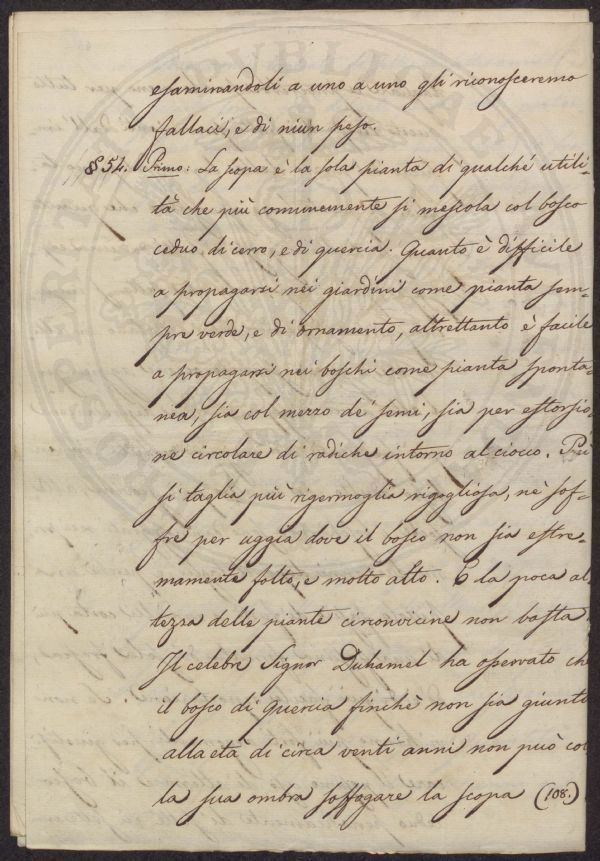 esaminandoli a uno a uno gli riconosceremo
fallaci, e di niun peso.
§ 54. Primo: La scopa è la sola pianta di qualche utili-
tà che più comunemente si mescola col bosco
ceduo di cerro, e di quercia. Quanto è difficile
a propagarsi nei giardini come pianta sem-
pre verde, e di ornamento, altrettanto è facile
a propagarsi nei boschi come pianta sponta-
nea, sia col mezzo de' semi, sia per estorsio-
ne circolare di radiche intorno al ciocco. Più
si taglia più rigermoglia rigogliosa, nè sof-
fre per uggia dove il bosco non sia estre-
mamente folto, e molto alto. E la poca al
tezza delle piante circonvicine non basta
Il celebre Signor Duhamel ha osservato ch
il bosco di quercia finchè non sia giunto
alla età di circa venti anni non può col
la sua ombra soffogare la scopa (108.)